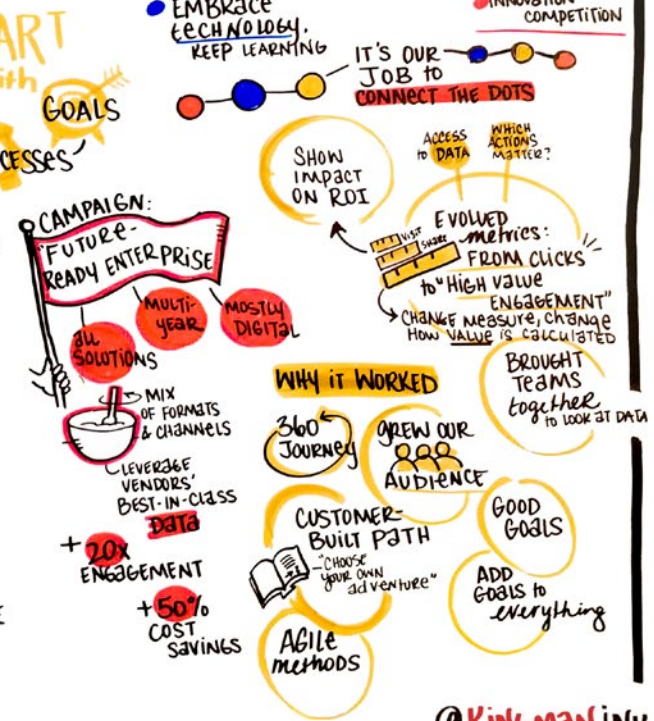 ART
ith
GOALS
CESSES
EMBRACE
TECHNOLOGY.
KEEP LEARNING
INNOVATION
COMPETITION
IT'S OUR
JOB to
CONNECT THE DOTS
SHOW
IMPACT
ON ROI
ACCESS
to DATA
WHICH
ACTIONS
MATTER?
VISIT
SHARE
EVOLVED
metrics:
FROM CLICKS
to "HIGH VALUE
ENGAGEMENT"
CHANGE MEASURE, CHANGE
HOW VALUE IS CALCULATED
BROUGHT
TEAMS
together
to LOOK at DATA
CAMPAIGN:
"FUTURE-
READY ENTERPRISE
all
SOLUTIONS
MULTI-
YEAR
MOSTLY
DIGITAL
MIX
OF FORMATS
& CHANNELS
LEVERAGE
VENDORS'
BEST-IN-CLASS
DATA
+ 20x
ENGAGEMENT
+50%
COST
SAVINGS
WHY IT WORKED
360°
JOURNEY
GREW OUR
AUDIENCE
CUSTOMER-
BUILT PATH
"CHOOSE
YOUR OWN
adVENTURE"
AGILE
methods
GOOD
GOALS
ADD
GOALS to
everything